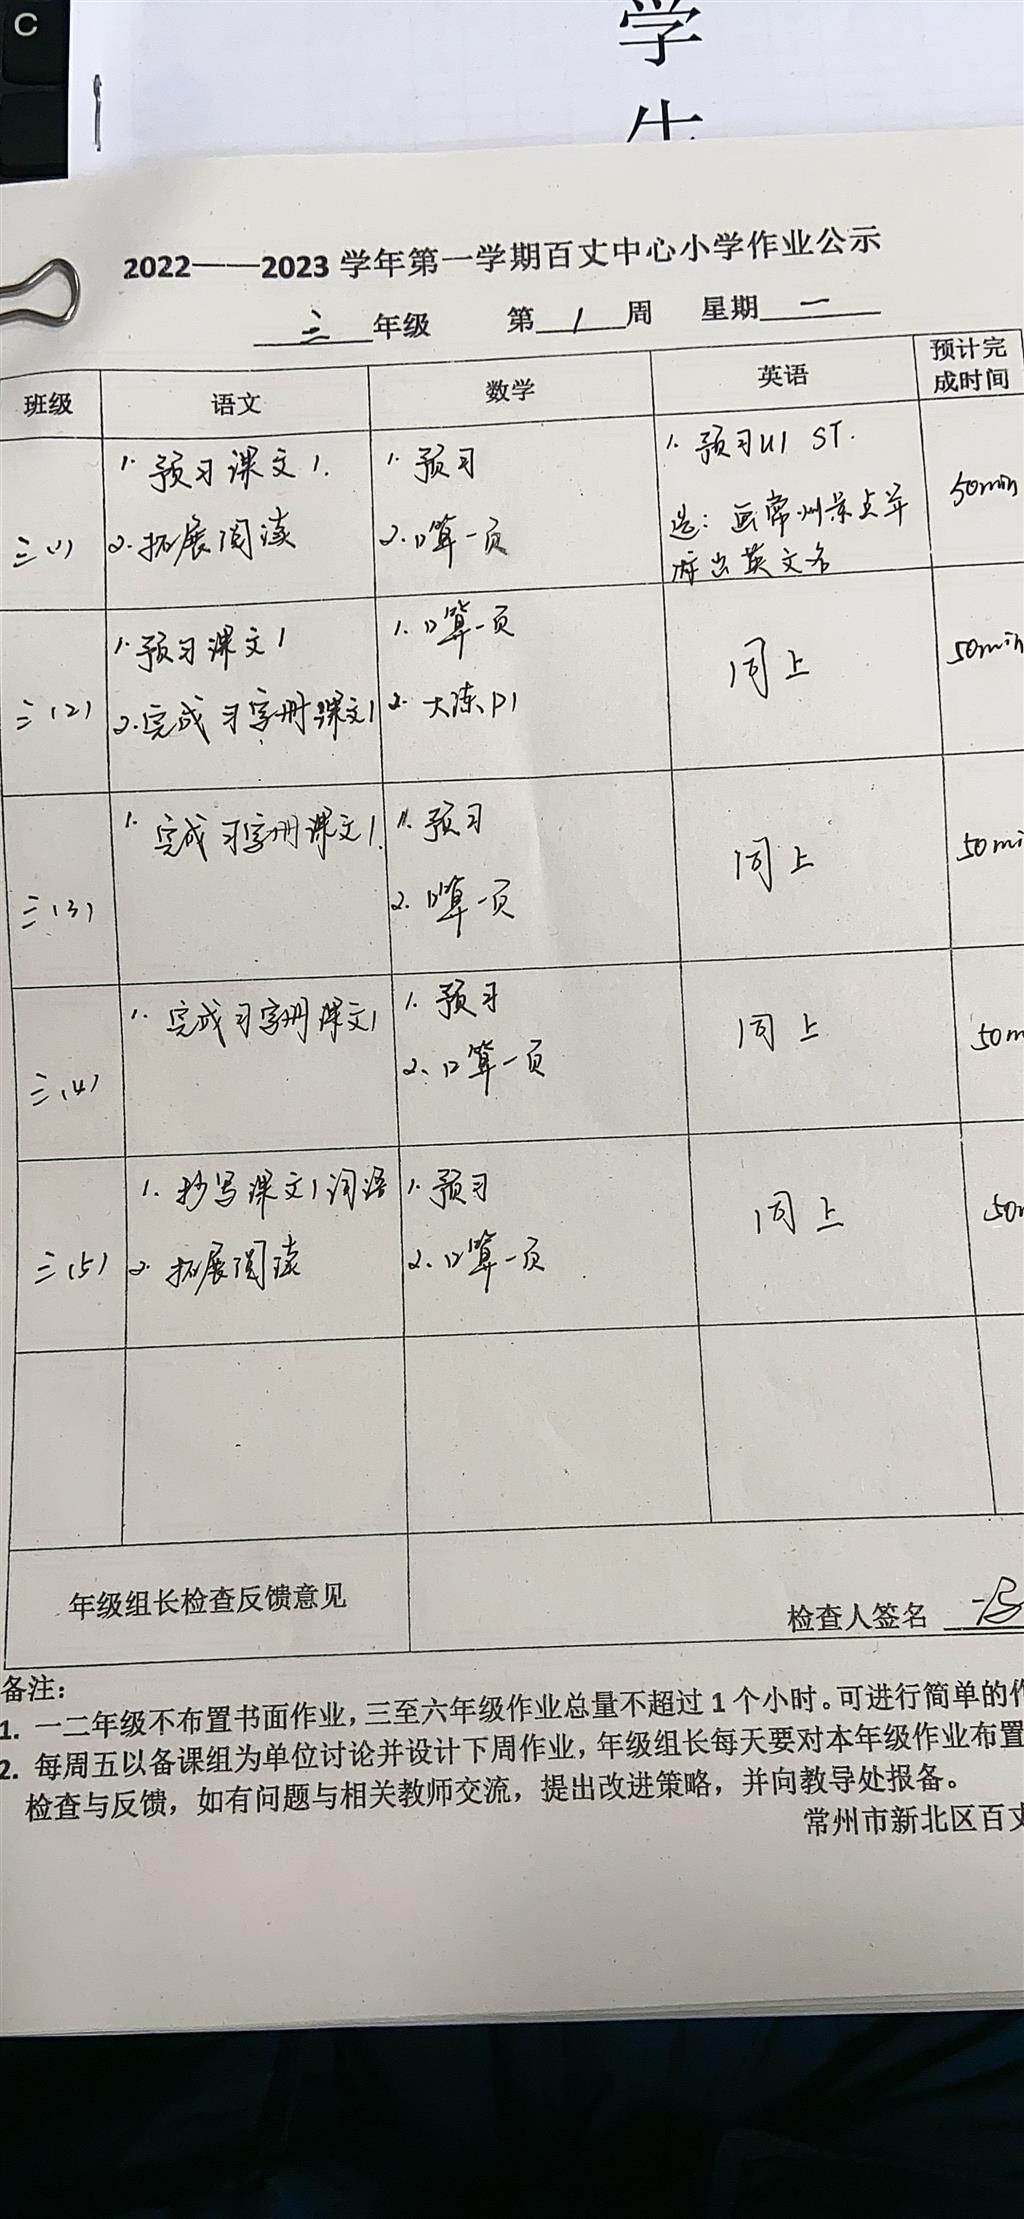 C
学
生
2022——2023 学年第一学期百丈中心小学作业公示
三 年级 第 1 周 星期 一
班级 语文 数学 英语 预计完成时间
三(1)
1. 预习课文1.
2. 拓展阅读
1. 预习
2. 口算一页
1. 预习U1 ST.
选：画常州景点并
标出英文名
50min
三(2)
1. 预习课文1
2. 完成习字册课文1
1. 口算一页
2. 大练P1
同上
50min
三(3)
1. 完成习字册课文1.
1. 预习
2. 口算一页
同上
50mi
三(4)
1. 完成习字册课文1
1. 预习
2. 口算一页
同上
50m
三(5)
1. 抄写课文1词语
2. 拓展阅读
1. 预习
2. 口算一页
同上
50
年级组长检查反馈意见
检查人签名
备注：
1. 一二年级不布置书面作业，三至六年级作业总量不超过 1 个小时。可进行简单的作
2. 每周五以备课组为单位讨论并设计下周作业，年级组长每天要对本年级作业布置
检查与反馈，如有问题与相关教师交流，提出改进策略，并向教导处报备。
常州市新北区百丈